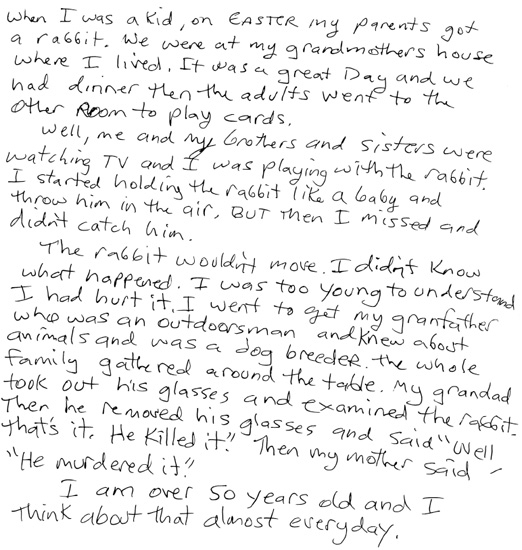 When I was a kid, on EASTER my parents got
a rabbit. We were at my grandmothers house
where I lived. It was a great Day and we
had dinner then the adults went to the
other Room to play cards.
Well, me and my brothers and sisters were
watching TV and I was playing with the rabbit.
I started holding the rabbit like a baby and
throw him in the air. BUT then I missed and
didn't catch him.
The rabbit wouldn't move. I didn't know
what happened. I was too young to understand
I had hurt it. I went to get my granfather
who was an outdoorsman and knew about
animals and was a dog breeder. the whole
family gathered around the table. My grandad
took out his glasses and examined the rabbit.
Then he removed his glasses and said "Well
that's it. He killed it." Then my mother said -
"He murdered it."
I am over 50 years old and I
think about that almost everyday.